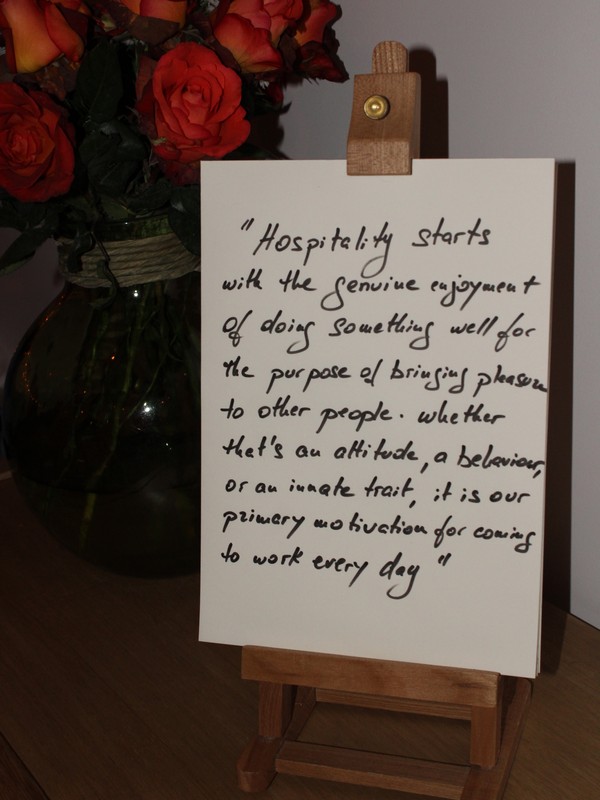 "Hospitality starts
with the genuine enjoyment
of doing something well for
the purpose of bringing pleasure
to other people. whether
that's an attitude, a behaviour,
or an innate trait, it is our
primary motivation for coming
to work every day"